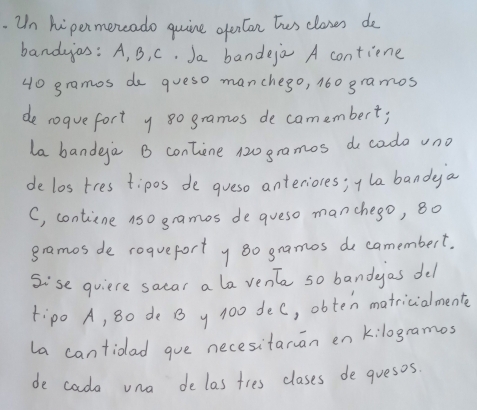 . Un hipermercado quiere ofertar tres clases de
bandejas: A, B, C. La bandeja A contiene
40 gramos de queso manchego, 160 gramos
de roquefort y 80 gramos de camembert;
La bandeja B contiene 120 gramos de cada uno
de los tres tipos de queso anteriores; y la bandeja
C, contiene 150 gramos de queso manchego, 80
gramos de roquefort y 80 gramos de camembert.
Si se quiere sacar a la venta 50 bandejas del
tipo A, 80 de B y 100 de C, obtén matricialmente
la cantidad que necesitarían en kilogramos
de cada una de las tres clases de quesos.